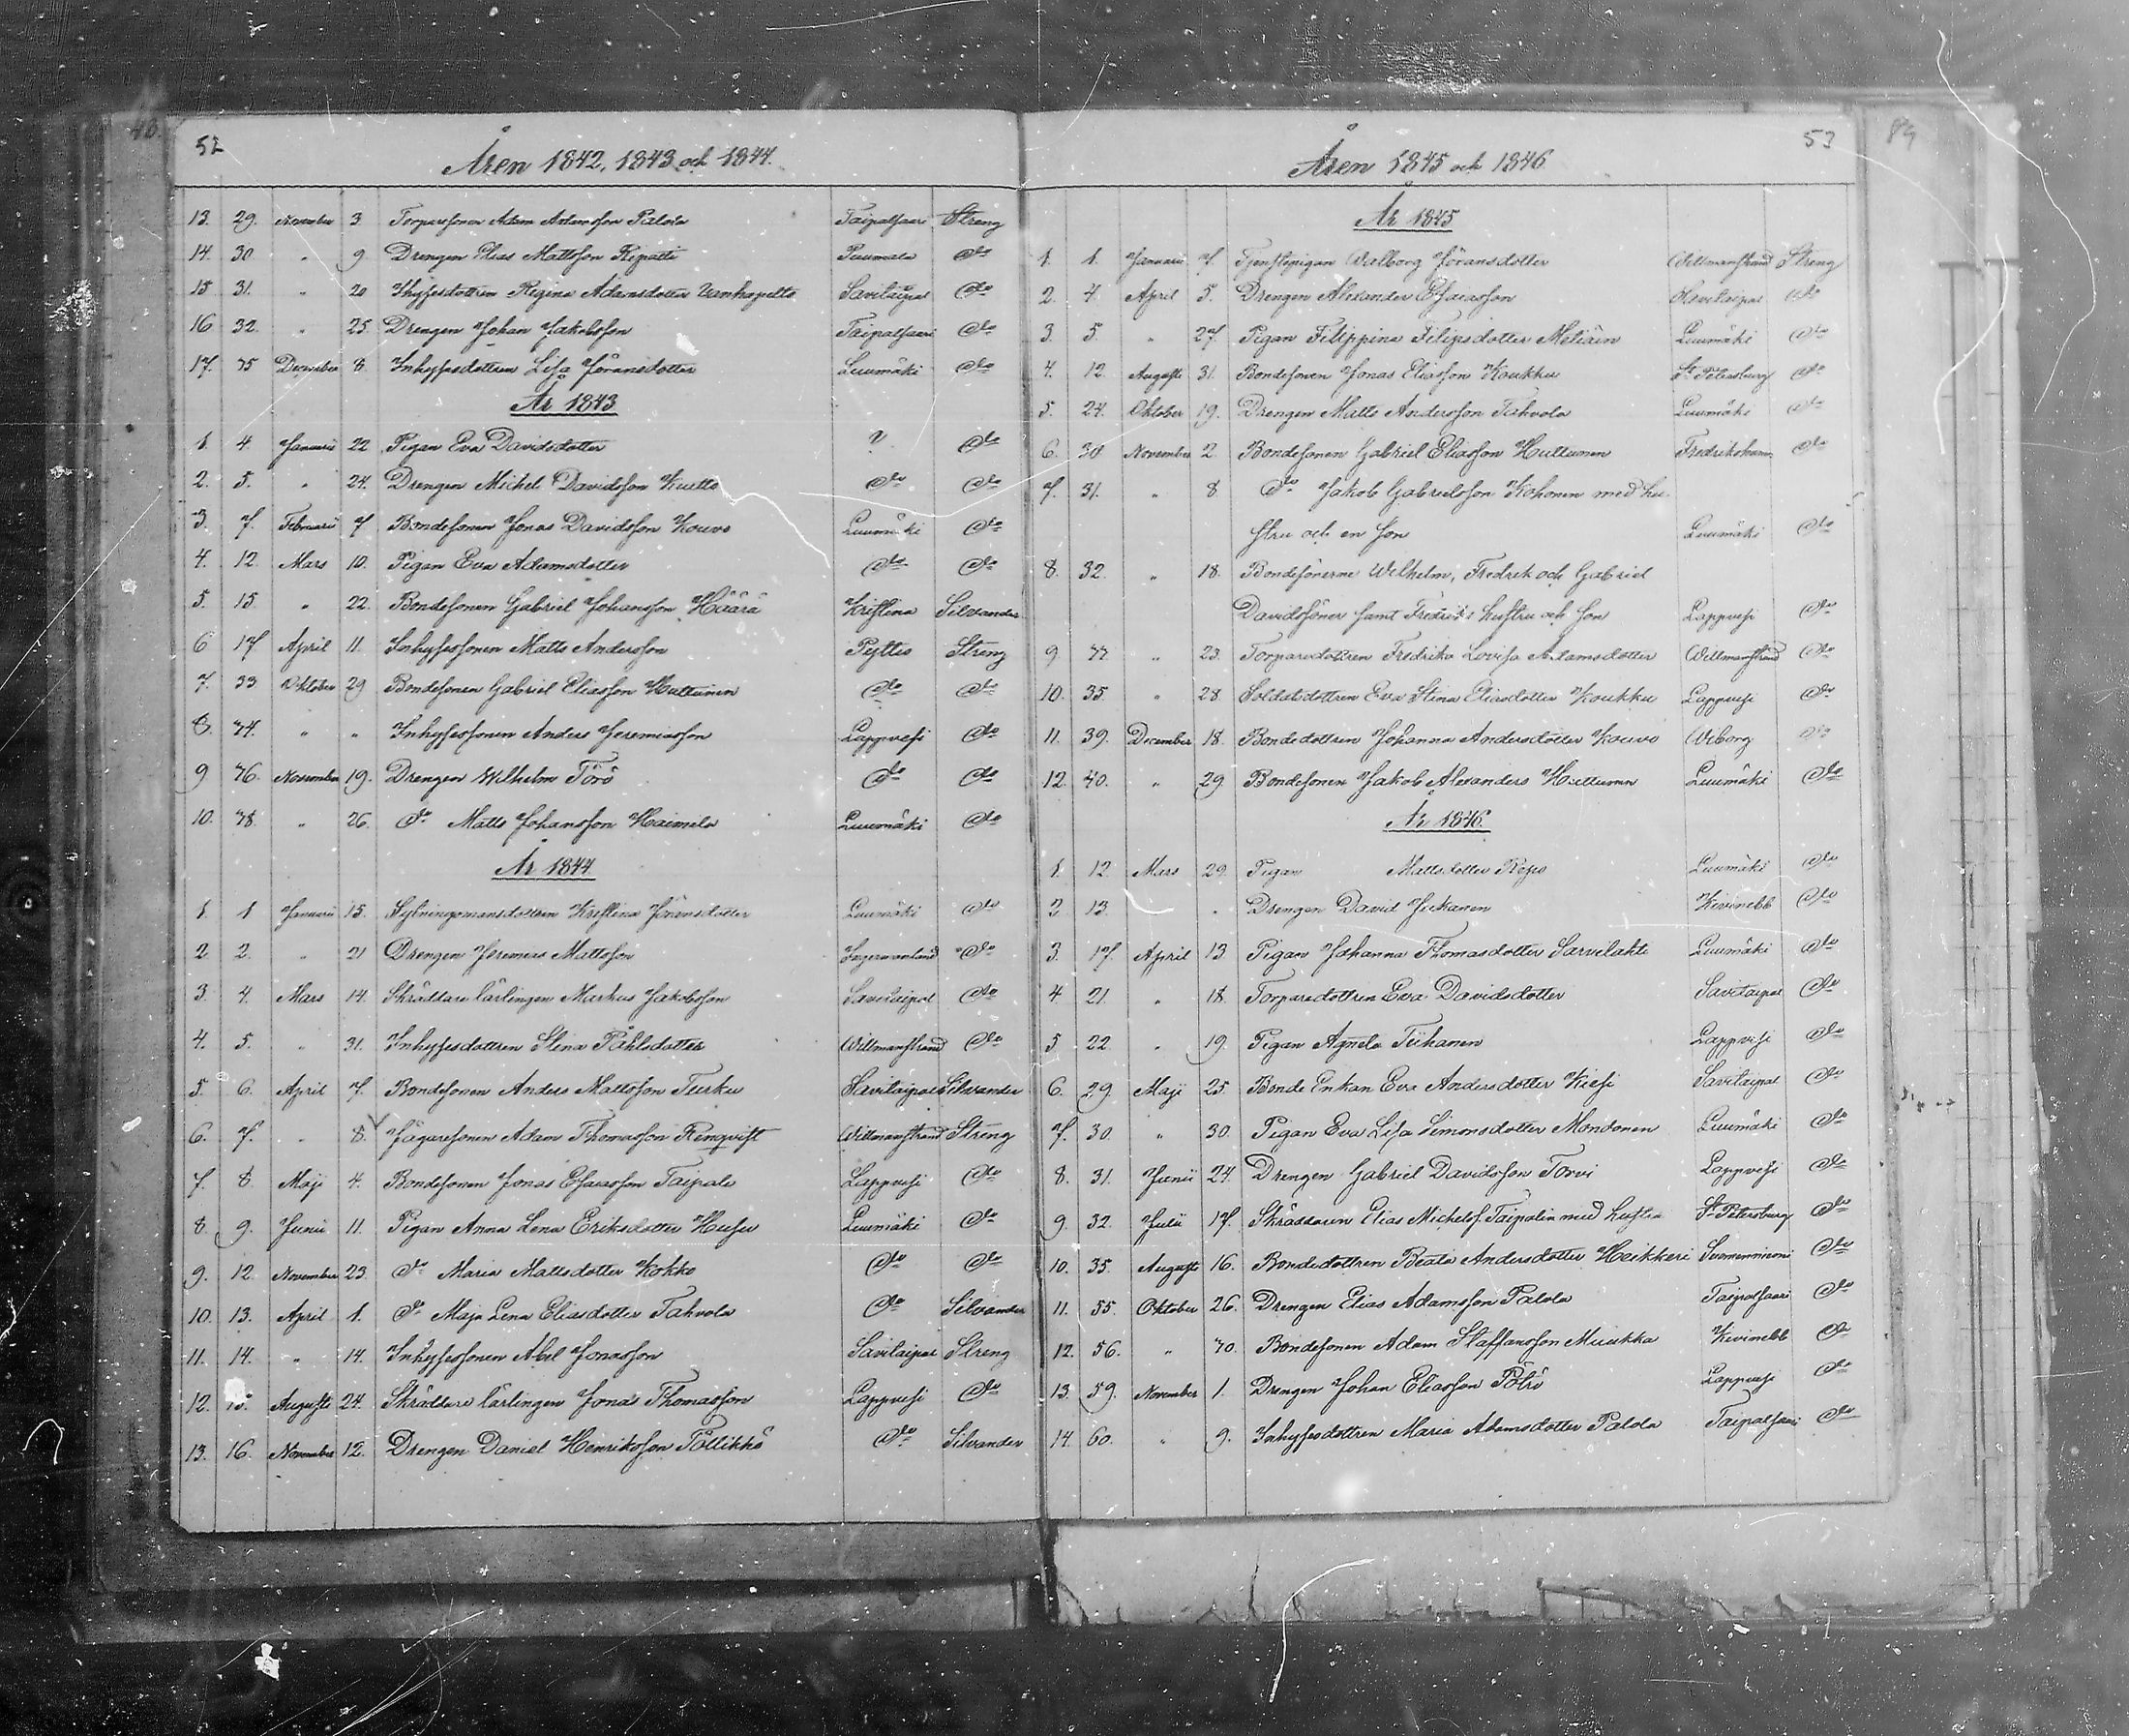 40.
52
Åren 1842, 1843 och 1844.
13. 29. November 3 Torparesonen Adam Adamsson Palola Taipalsaari Streng
14. 30 " 9 Drengen Elias Mattsson Ripatti Puumala do
15 31. " 20 Ihysesdottren Regina Adamsdotter Vanhapelto Savitaipal do
16 32. " 25. Drengen Johan Jakobsson Taipalsaari do
17. 35 December 8. Inhysesdottren Lisa Göransdotter Luumäki do
År 1843
1 4 Januarii 22 Pigan Eva Davidsdotter ? do
2. 5. " 24. Drengen Michel Davidsson Kutto do do
3. 7. Februarii 7 Bondesonen Jonas Davidsson Kouvo Luumäki do
4. 12. Mars 10. Pigan Eva Adamsdotter do do
5. 15 " 22. Bondesonen Gabriel Johansson Häärä Kristina Silvander
6 17 April 11. Inhysessonen Matts Andersson Pyttis Streng
7. 33 Oktober 29 Bondesonen Gabriel Eliasson Huttunen do do
8. 34. " " Inhysessonen Anders Jeremiasson Lappvesi do
9 36. November 19. Drengen Wilhelm Törö do do
10. 38. " 26. do Matts Johansson Haimela Luumäki do
År 1844
1. 1 Januarii 15. Sytningsmansdottren Kristina Göransdotter Luumäki do
2 2. " 21 Drengen Jeremias Mattsson Ingermanland do
3. 4. Mars 14. Skräddare lärlingen Markus Jakobsson Savitaipal do
4. 5. " 31. Inhysesdottren Stina Påhlsdotter Willmanstrand do
5. 6. April 7. Bondesonen Anders Mattsson Turku Savitaipal Silvander
6. 7. " 8. Jägaresonen Adam Thomasson Renqvist Willmanstrand Streng
7. 8. Maji 4. Bondesonen Jonas Esaiasson Taipale Lappvesi do
8 9. Junii 11. Pigan Anna Lena Eriksdotter Husu Luumäki do
9. 12. November 23. do Maria Mattsdotter Kokko do do
10. 13. April 1. do Maja Lena Eliasdotter Tahvola do Silvander
11. 14. " 14. Inhysessonen Abel Jonasson Savitaipal Streng
12. 15. Augusti 24. Skräddare lärlingen Jonas Thomasson Lappvesi do
13. 16. November 12. Drengen Daniel Henriksson Töllikkö do Silvander
53
89
Åren 1845 och 1846
År 1845
1. 1. Januarii 7. Tjenstepigan Valborg Göransdotter Willmanstrand Streng
2. 4. April 5. Drengen Alexander Esaiasson Savitaipal do
3. 5. " 27. Pigan Filippina Filipsdotter Meliäin Luumäki do
4. 12. Augusti 31. Bondesonen Jonas Eliasson Koukku St. Petersburg do
5. 24. Oktober 19. Drengen Matts Andersson Tahvola Luumäki do
6. 30. November 2. Bondesonen Gabriel Eliasson Huttunen Fredrikshamn do
7. 31. " 8 do Jakob Gabrielsson Kohonen med hu
stru och en son Luumäki do
8. 32. " 18. Bondesönerne Wilhelm, Fredrik och Gabriel
Davidssöner samt Fredriks hustru och son Lappvesi do
9 " 23. Torparedottren Fredrika Lovisa Adamsdotter Willmanstrand do
10. 35. " 28. Soldatsdottren Eva Stina Eliasdotter Koukku Lappvesi do
11. 39. December 18. Bondedottren Johanna Andersdotter Kouvo Wiborg do
12. 40. " 29. Bondesonen Jakob Alexanders Huttunen Luumäki do
År 1846.
1. 12. Mars 29. Pigan Mattsdotter Repo Luumäki do
2 13. " Drengen David Jukanen Kivinebb do
3. 17. April 13 Pigan Johanna Thomasdotter Sarvilahti Luumäki do
4 21. " 18. Torparedottren Eva Davidsdotter Savitaipal do
5 22. " 19. Pigan Agneta Tiihanen Lappvesi do
6. 29. Maji 25. Bonde Enkan Eva Andersdotter Kiesi Savitaipal do
7. 30. " 30. Pigan Eva Lisa Simonsdotter Mondonen Luumäki do
8. 31. Junii 24. Drengen Gabriel Davidsson Torvi Lappvesi do
9. 32. Julii 17. Skräddaren Elias Michelss. Taipalin med hustru St. Petersburg do
10. 35. Augusti 16. Bondedottren Beata Andersdotter Heikkeri Suomenniemi do
11. 55. Oktober 26. Drengen Elias Adamsson Palola Taipalsaari do
12. 56. " 30. Bondesonen Adam Staffansson Muukka Kivinebb do
13. 59. November 1. Drengen Johan Eliasson Pölrö Lappvesi do
14. 60. " 9. Inhysesdottren Maria Adamsdotter Palola Taipalsaari do